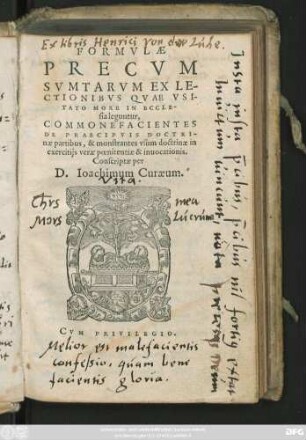 Ex libris Henrici von der Lühe.
FORMVLÆ
PRECVM
SVMTARVM EX LE-
CTIONIBVS QVAE VSI-
TATO MORE IN ECCLE-
sia leguntur,
COMMONEFACIENTES
DE PRAECIPVIS DOCTRI-
næ partibus, & monstrantes vsum doctrinæ in
exercitijs veræ pœnitentiæ & inuocationis.
Conscriptæ per
D. Ioachimum Curæum.
Vita.
Chrs mea
Mors Lucrum
CVM PRIVILEGIO.
Melior est malefacientis
confessio, quam bene
facientis gloria.
Insta insta precibus, precibus nil fortius extat
Deum